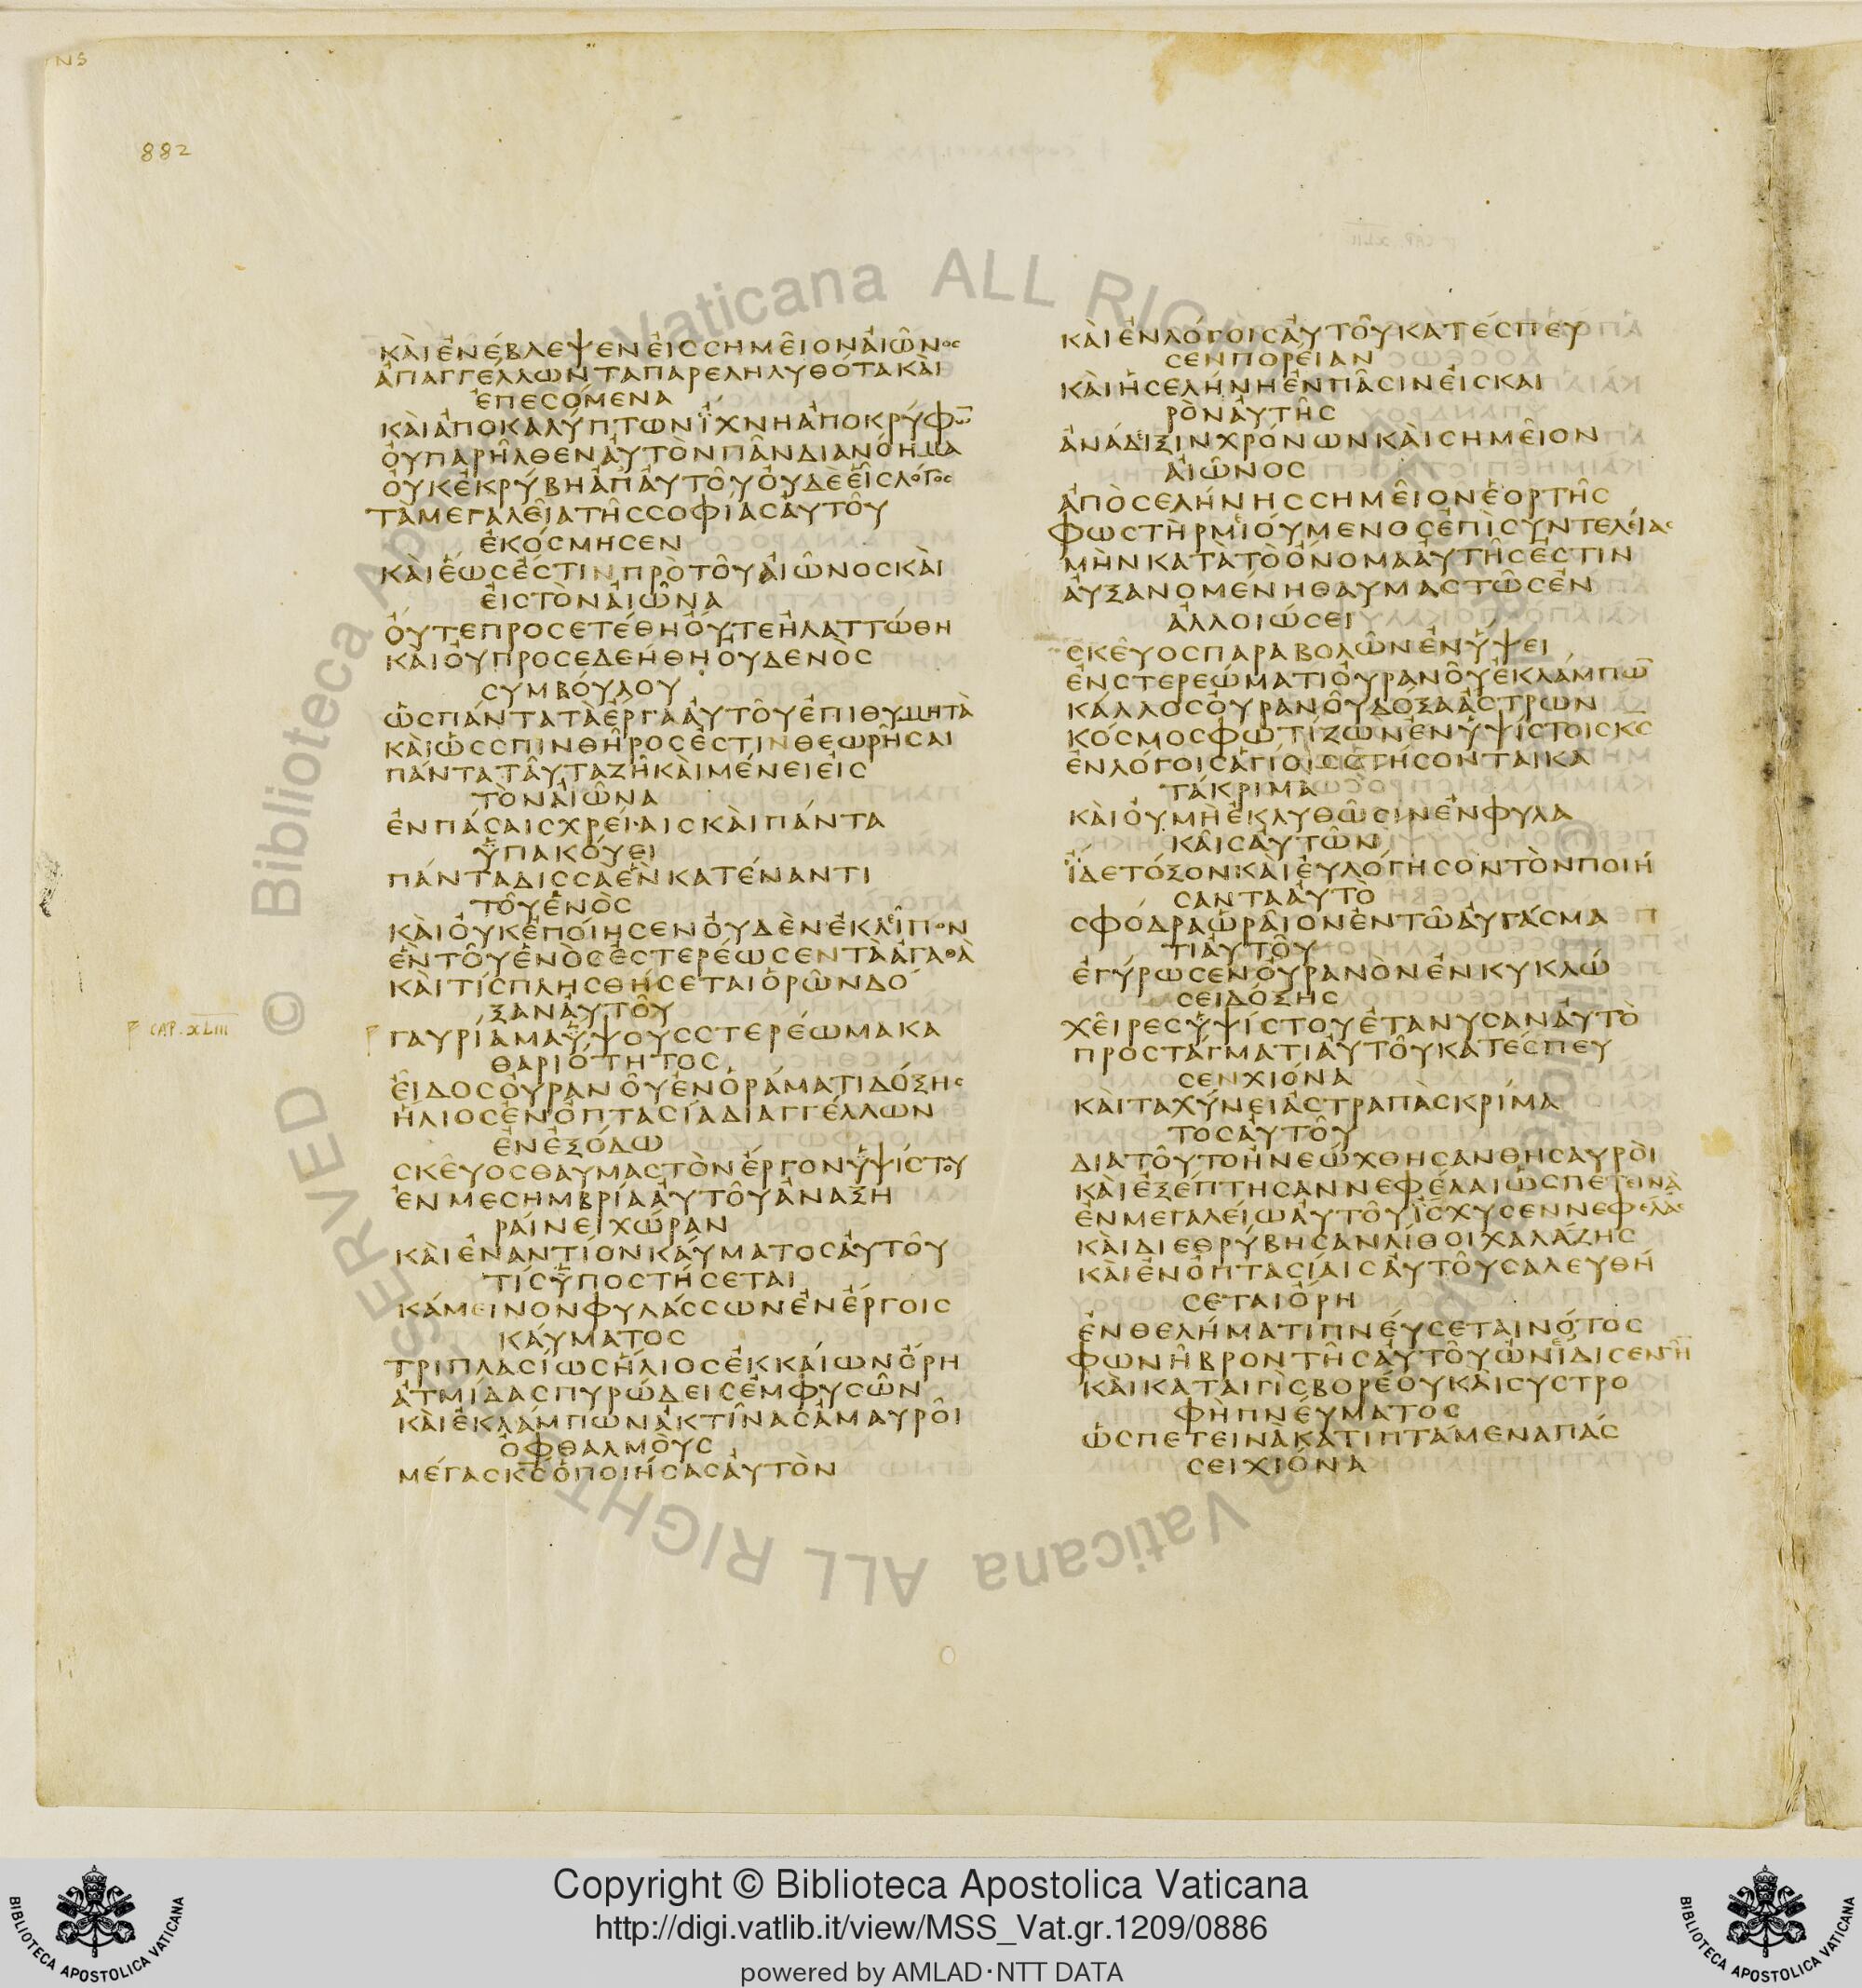 882
ΚΑΙΕΝΕΒΛΕΨΕΝΕΙССΗΜΕΙΟΝΑΙΩΝΟС
ΑΠΑΓΓΕΛΛΩΝΤΑΠΑΡΕΛΗΛΥΘΟΤΑΚΑΙ
ΕΠΕСΟΜΕΝΑ
ΚΑΙΑΠΟΚΑΛΥΠΤΩΝΪΧΝΗΑΠΟΚΡΥΦΩ̅
ΟΥΠΑΡΗΛΘΕΝΑΥΤΟΝΠΑΝΔΙΑΝΟΗΜΑ
ΟΥΚΕΚΡΥΒΗΑΠΑΥΤΟΥΟΥΔΕΕΙСΛΟΓΟС
ΤΑΜΕΓΑΛΕΙΑΤΗССΟΦΙΑСΑΥΤΟΥ
ΕΚΟСΜΗСΕΝ
ΚΑΙΕΩСΕСΤΙΝΠΡΟΤΟΥΑΙΩΝΟСΚΑΙ
ΕΙСΤΟΝΑΙΩΝΑ
ΟΥΤΕΠΡΟСΕΤΕΘΗΟΥΤΕΗΛΑΤΤΩΘΗ
ΚΑΙΟΥΠΡΟСΕΔΕΗΘΗΟΥΔΕΝΟС
СΥΜΒΟΥΛΟΥ
ΩСΠΑΝΤΑΤΑΕΡΓΑΑΥΤΟΥΕΠΙΘΥΜΗΤΑ
ΚΑΙΩССΠΙΝΘΗΡΟСΕСΤΙΝΘΕΩΡΗСΑΙ
ΠΑΝΤΑΤΑΥΤΑΖΗΚΑΙΜΕΝΕΙΕΙС
ΤΟΝΑΙΩΝΑ
ΕΝΠΑСΑΙСΧΡΕΙΑΙСΚΑΙΠΑΝΤΑ
ΥΠΑΚΟΥΕΙ
ΠΑΝΤΑΔΙССΑΕΝΚΑΤΕΝΑΝΤΙ
ΤΟΥΕΝΟС
ΚΑΙΟΥΚΕΠΟΙΗСΕΝΟΥΔΕΝΕΚΛΕΙΠΟΝ
ΕΝΤΟΥΕΝΟСΕСΤΕΡΕΩСΕΝΤΑΑΓΑΘΑ
ΚΑΙΤΙСΠΛΗСΘΗСΕΤΑΙΟΡΩΝΔΟ
ΞΑΝΑΥΤΟΥ
CAP. XLIII
ΓΑΥΡΙΑΜΑΥΨΟΥССΤΕΡΕΩΜΑΚΑ
ΘΑΡΙΟΤΗΤΟС
ΕΙΔΟСΟΥΡΑΝΟΥΕΝΟΡΑΜΑΤΙΔΟΞΗС
ΗΛΙΟСΕΝΟΠΤΑСΙΑΔΙΑΓΓΕΛΛΩΝ
ΕΝΕΞΟΔΩ
СΚΕΥΟСΘΑΥΜΑСΤΟΝΕΡΓΟΝΥΨΙСΤΟΥ
ΕΝΜΕСΗΜΒΡΙΑΑΥΤΟΥΑΝΑΞΗ
ΡΑΙΝΕΙΧΩΡΑΝ
ΚΑΙΕΝΑΝΤΙΟΝΚΑΥΜΑΤΟСΑΥΤΟΥ
ΤΙСΥΠΟСΤΗСΕΤΑΙ
ΚΑΜΕΙΝΟΝΦΥΛΑССΩΝΕΝΕΡΓΟΙС
ΚΑΥΜΑΤΟС
ΤΡΙΠΛΑСΙΩСΗΛΙΟСΕΚΚΑΙΩΝΟΡΗ
ΑΤΜΙΔΑСΠΥΡΩΔΕΙСΕΜΦΥСΩΝ
ΚΑΙΕΚΛΑΜΠΩΝΑΚΤΙΝΑСΑΜΑΥΡΟΙ
ΟΦΘΑΛΜΟΥС
ΜΕΓΑСΚ̅С̅ΟΠΟΙΗСΑСΑΥΤΟΝ
ΚΑΙΕΝΛΟΓΟΙСΑΥΤΟΥΚΑΤΕСΠΕΥ
СΕΝΠΟΡΕΙΑΝ
ΚΑΙΗСΕΛΗΝΗΕΝΠΑСΙΝΕΙСΚΑΙ
ΡΟΝΑΥΤΗС
ΑΝΑΔΕΙΞΙΝΧΡΟΝΩΝΚΑΙСΗΜΕΙΟΝ
ΑΙΩΝΟС
ΑΠΟСΕΛΗΝΗССΗΜΕΙΟΝΕΟΡΤΗС
ΦΩСΤΗΡΜΕΙΟΥΜΕΝΟСΕΠΙСΥΝΤΕΛΕΙΑС
ΜΗΝΚΑΤΑΤΟΟΝΟΜΑΑΥΤΗСΕСΤΙΝ
ΑΥΞΑΝΟΜΕΝΗΘΑΥΜΑСΤΩСΕΝ
ΑΛΛΟΙΩСΕΙ
СΚΕΥΟСΠΑΡΑΒΟΛΩΝΕΝΥΨΕΙ
ΕΝСΤΕΡΕΩΜΑΤΙΟΥΡΑΝΟΥΕΚΛΑΜΠΩ̅
ΚΑΛΛΟСΟΥΡΑΝΟΥΔΟΞΑΑСΤΡΩΝ
ΚΟСΜΟСΦΩΤΙΖΩΝΕΝΥΨΙСΤΟΙСΚ̅С̅
ΕΝΛΟΓΟΙСΑΓΙΟΙССΤΗСΟΝΤΑΙΚΑ
ΤΑΚΡΙΜΑ
ΚΑΙΟΥΜΗΕΚΛΥΘΩСΙΝΕΝΦΥΛΑ
ΚΑΙСΑΥΤΩΝ
ΪΔΕΤΟΞΟΝΚΑΙΕΥΛΟΓΗСΟΝΤΟΝΠΟΙΗ
СΑΝΤΑΑΥΤΟ
СΦΟΔΡΑΩΡΑΙΟΝΕΝΤΩΑΥΓΑСΜΑ
ΤΙΑΥΤΟΥ
ΕΓΥΡΩСΕΝΟΥΡΑΝΟΝΕΝΚΥΚΛΩ
СΕΙΔΟΞΗС
ΧΕΙΡΕСΥΨΙСΤΟΥΕΤΑΝΥСΑΝΑΥΤΟ
ΠΡΟСΤΑΓΜΑΤΙΑΥΤΟΥΚΑΤΕСΠΕΥ
СΕΝΧΙΟΝΑ
ΚΑΙΤΑΧΥΝΕΙΑСΤΡΑΠΑСΚΡΙΜΑ
ΤΟСΑΥΤΟΥ
ΔΙΑΤΟΥΤΟΗΝΕΩΧΘΗСΑΝΘΗСΑΥΡΟΙ
ΚΑΙΕΞΕΠΤΗСΑΝΝΕΦΕΛΑΙΩСΠΕΤΕΙΝΑ
ΕΝΜΕΓΑΛΕΙΩΑΥΤΟΥΙСΧΥСΕΝΝΕΦΕΛΑС
ΚΑΙΔΙΕΘΡΥΒΗСΑΝΛΙΘΟΙΧΑΛΑΖΗС
ΚΑΙΕΝΟΠΤΑСΙΑΙСΑΥΤΟΥСΑΛΕΥΘΗ
СΕΤΑΙΟΡΗ
ΕΝΘΕΛΗΜΑΤΙΠΝΕΥСΕΤΑΙΝΟΤΟС
ΦΩΝΗΒΡΟΝΤΗСΑΥΤΟΥΩΝΕΙΔΙСΕΝΓΗ̅
ΚΑΙΚΑΤΑΙΓΙСΒΟΡΕΟΥΚΑΙСΥСΤΡΟ
ΦΗΠΝΕΥΜΑΤΟС
ΩСΠΕΤΕΙΝΑΚΑΤΙΠΤΑΜΕΝΑΠΑС
СΕΙΧΙΟΝΑ
© Biblioteca Apostolica Vaticana ALL RIGHT RESERVED
Copyright © Biblioteca Apostolica Vaticana
http://digi.vatlib.it/view/MSS_Vat.gr.1209/0886
powered by AMLAD·NTT DATA
BIBLIOTECA APOSTOLICA VATICANA
BIBLIOTECA APOSTOLICA VATICANA